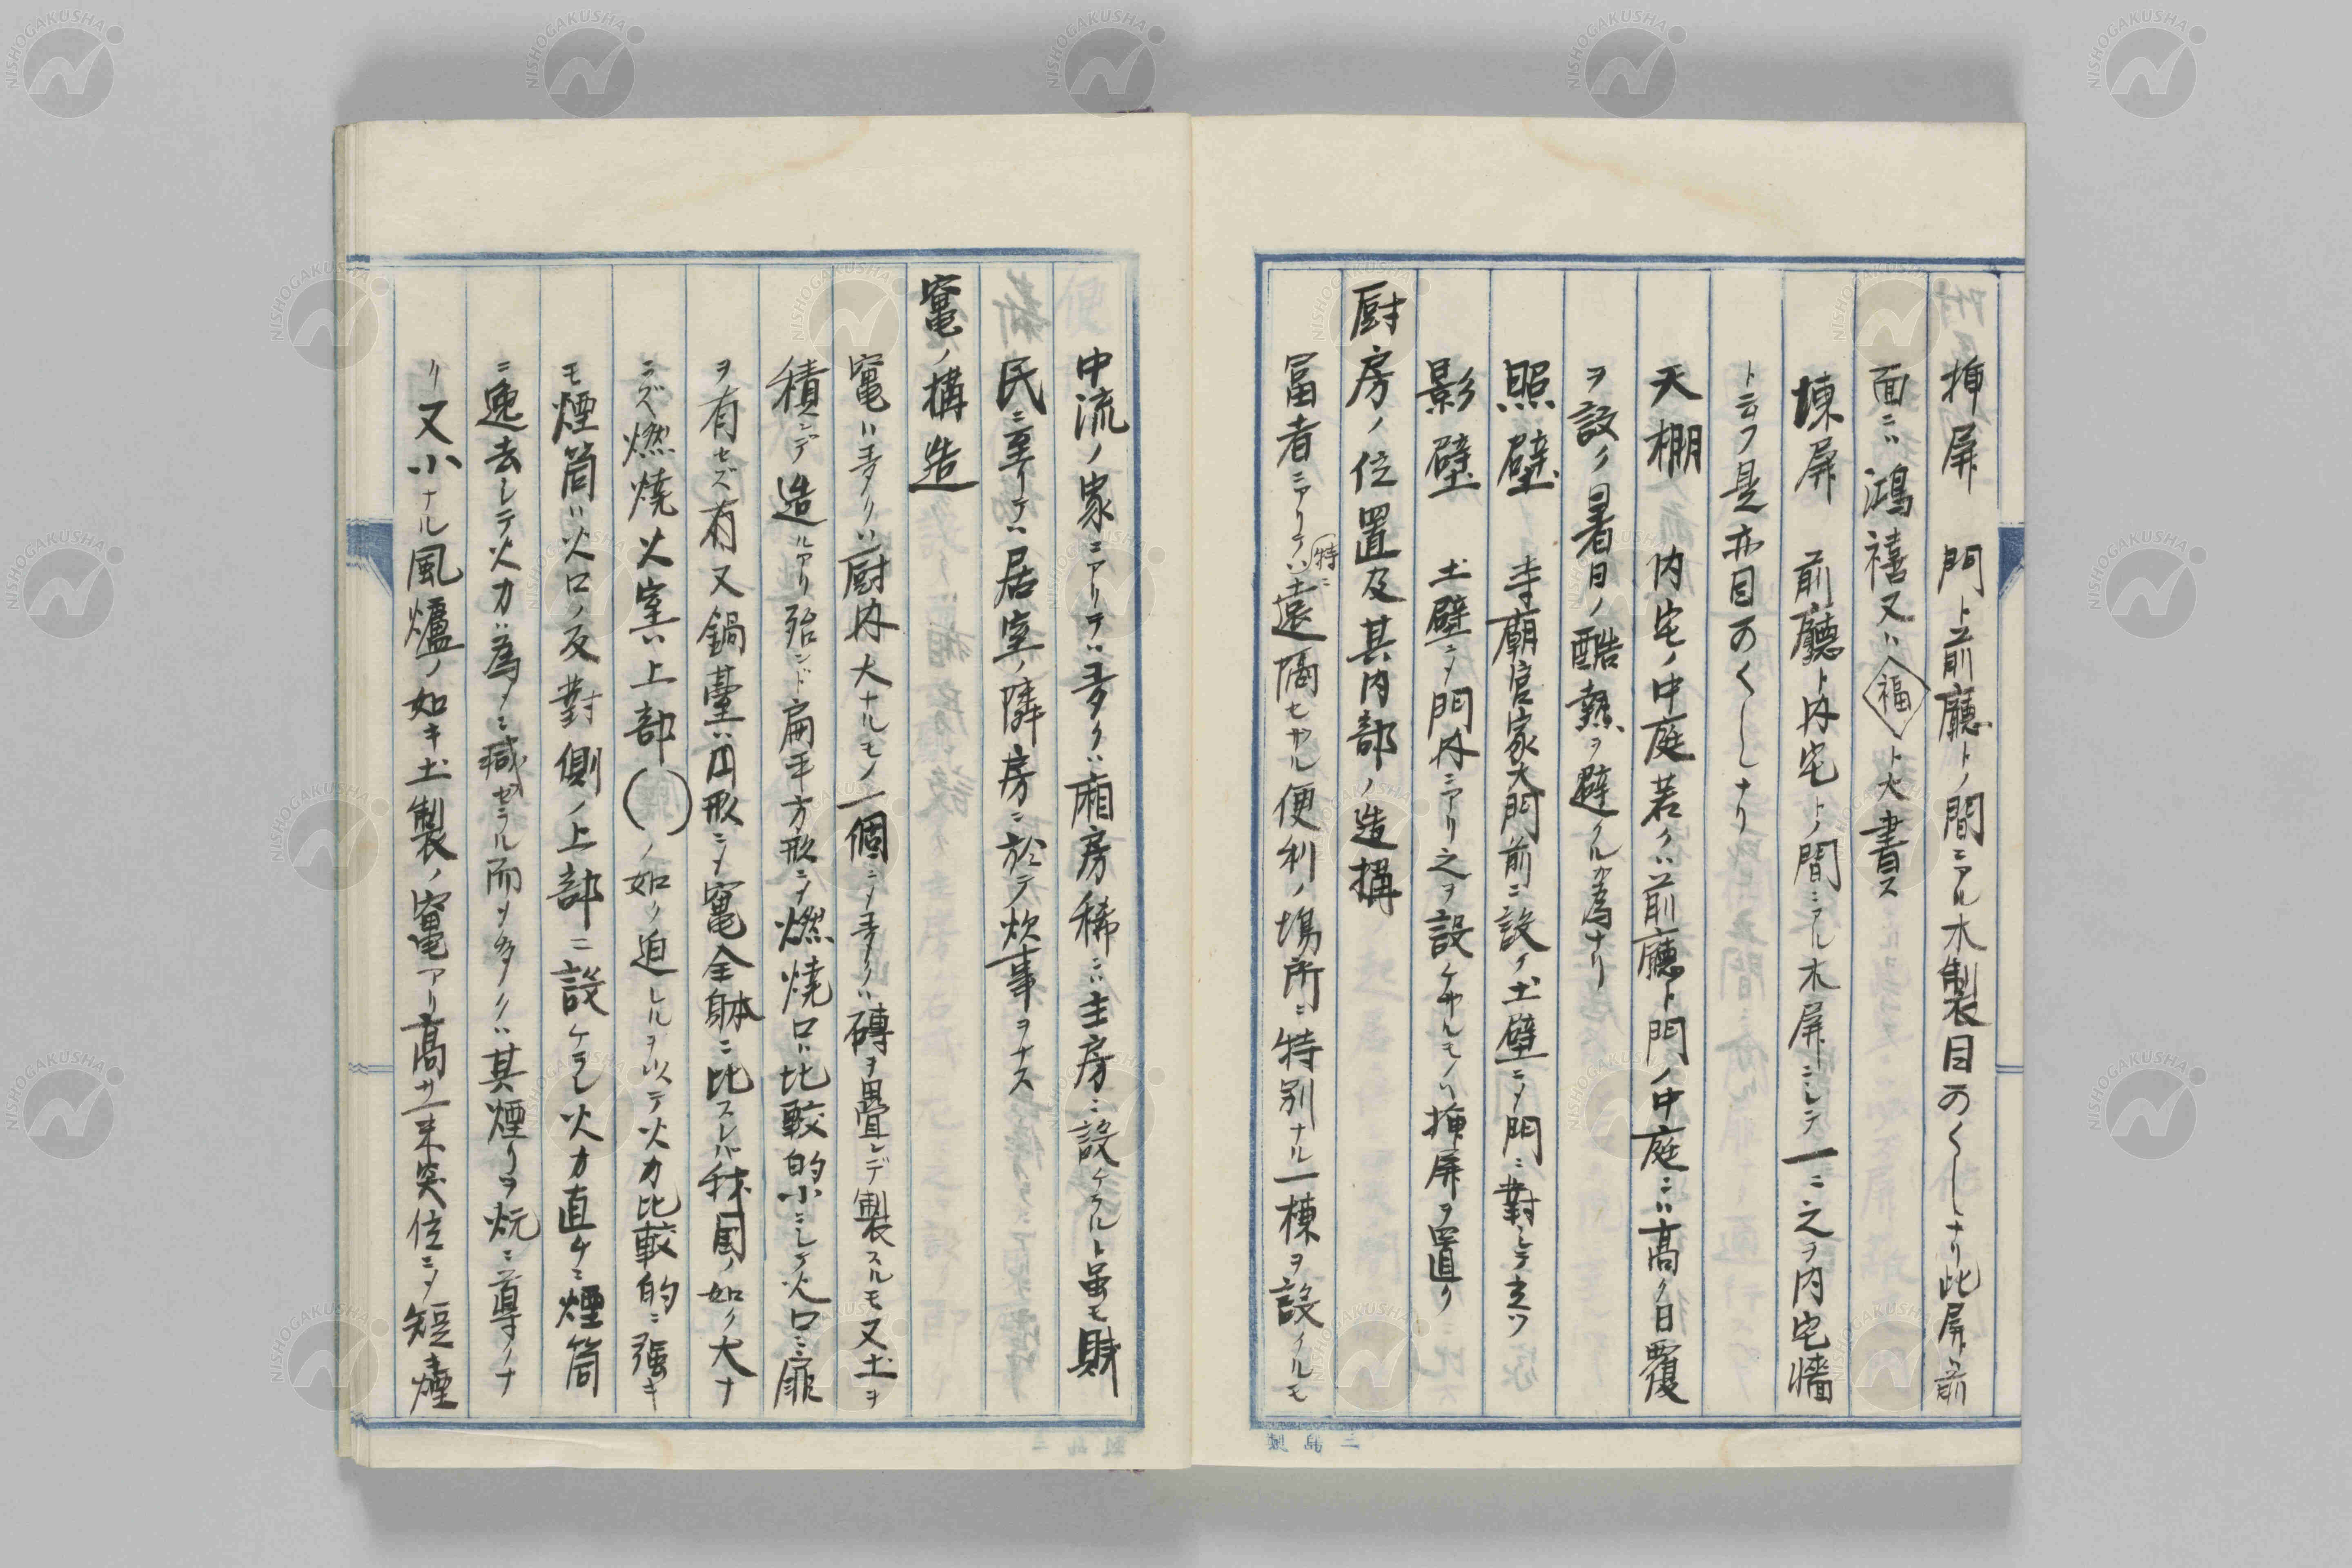 挿屏　門ト前廳トノ間ニアル木製目カクシナリ此屏ノ前
面ニハ鴻禧又ハ福ト大書ス
堜屏　前廳ト内宅トノ間ニアル木屏ニシテ一ニ之ヲ内宅墻
ト云フ是亦目カクシナリ
天棚　内宅ノ中庭若クハ前廳ト門ノ中庭ニハ高ク日覆
ヲ設ケ暑日ノ酷熱ヲ避クルカ為ナリ
照壁　寺廟官家大門前ニ設ケ土壁ニメ門ニ對シテ立ツ
影壁　土壁ニメ門内ニアリ之ヲ設ケサルモノハ挿屏ヲ置ク
厨房ノ位置及其内部ノ造構
冨者ニアリテハ特ニ遠隔セサル便利ノ塲所ニ特別ナル一棟ヲ設クルモ
中流ノ家ニアリテハ多クハ廂房稀ニハ主房ニ設ケラルト虽モ賎
民ニ至リテハ居室ノ隣房ニ於テ炊事ヲナス
竃ノ構造
竃ハ多クハ厨内大ナルモノ一個ニメ多クハ磚ヲ疊シデ製スルモ又土ヲ
積ンデ造ルアリ殆ンド扁平方形ニメ燃燒口ハ比較的小ニシテ火口ニ扉
ヲ有セズ有又鍋臺ハ円形ニメ竃全躰ニ比スレハ我国ノ如ク大ナ
ニズ燃燒火室ハ上部（）ノ如ク迫レルヲ以テ火力比較的ニ强キ
モ煙筒ハ火口ノ反對側ノ上部ニ設ケラレ火力直ケニ煙筒
ニ逸去シテ火力ハ為メニ减セラル而メ多クハ其煙リヲ炕ニ導クナ
リ又小ナル風爐ノ如キ土製ノ竃アリ高サ一米突位ニメ短煙